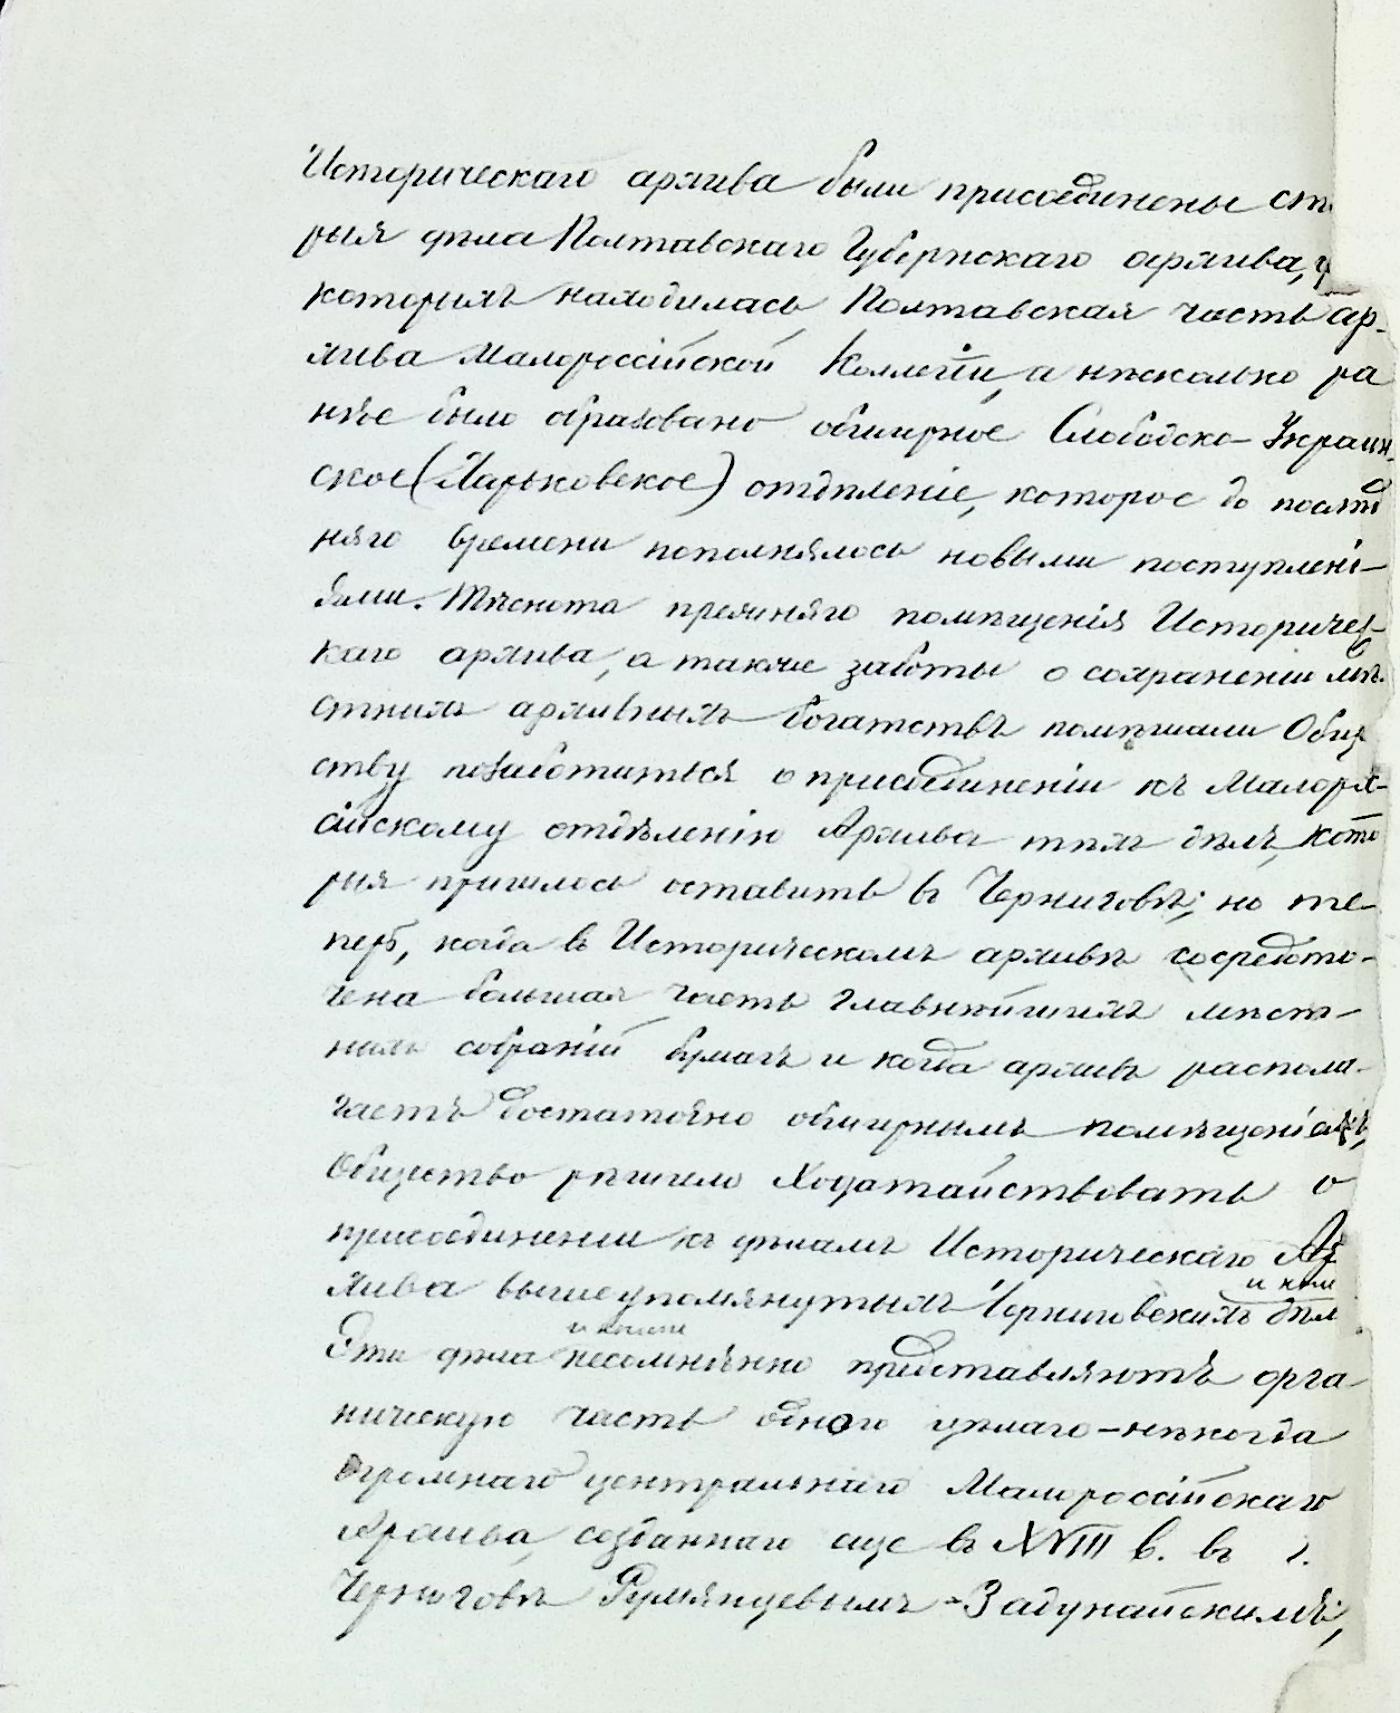 Историческаго архива были присоединены ст
рыя дѣла Полтавскаго Губернскаго архива,
которыхъ находилась Полтавская часть ар-
хива Малороссійской Коллегіи, а нѣсколько ра
нѣе было образовано обширное Слободско-Украин-
ское (Харьковское) отдѣленіе, которое до послѣд
няго времени пополнялось новыми поступлені-
ями. Тѣснота прежняго помѣщенія Историчес-
каго архива, а также заботы о сохраненіи мѣ-
стныхъ архивныхъ богатствъ помѣшали Общ
ству позаботиться о присоединеніи къ Малорос-
сійскому отдѣленію Архива тѣхъ дѣлъ, кото
рыя пришлось оставить въ Черниговѣ; но те-
перь, когда въ Историческомъ архивѣ сосредото-
чена большая часть главнѣйшихъ мѣст-
ныхъ собраній бумагъ и когда архивъ распола-
гаетъ достаточно обширнымъ помѣщеніемъ,
Общество рѣшило ходатайствовать о
присоединении къ дѣламъ Историческаго Ар
хива вышеупомянутыхъ Черниговскихъ и коп дѣл
Эти дѣла и копіи несомнѣнно представляютъ орга-
ническую часть одного цѣлаго-нѣкогда
огромнаго центральнаго Малороссійскаго
Архива, созданнаго еще въ XVIII в. въ г.
Черниговѣ Румянцевымъ-Задунайскимъ,